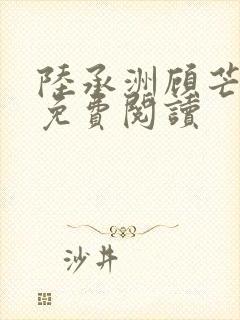 陸承洲顾芒
免費閱讀
沙井